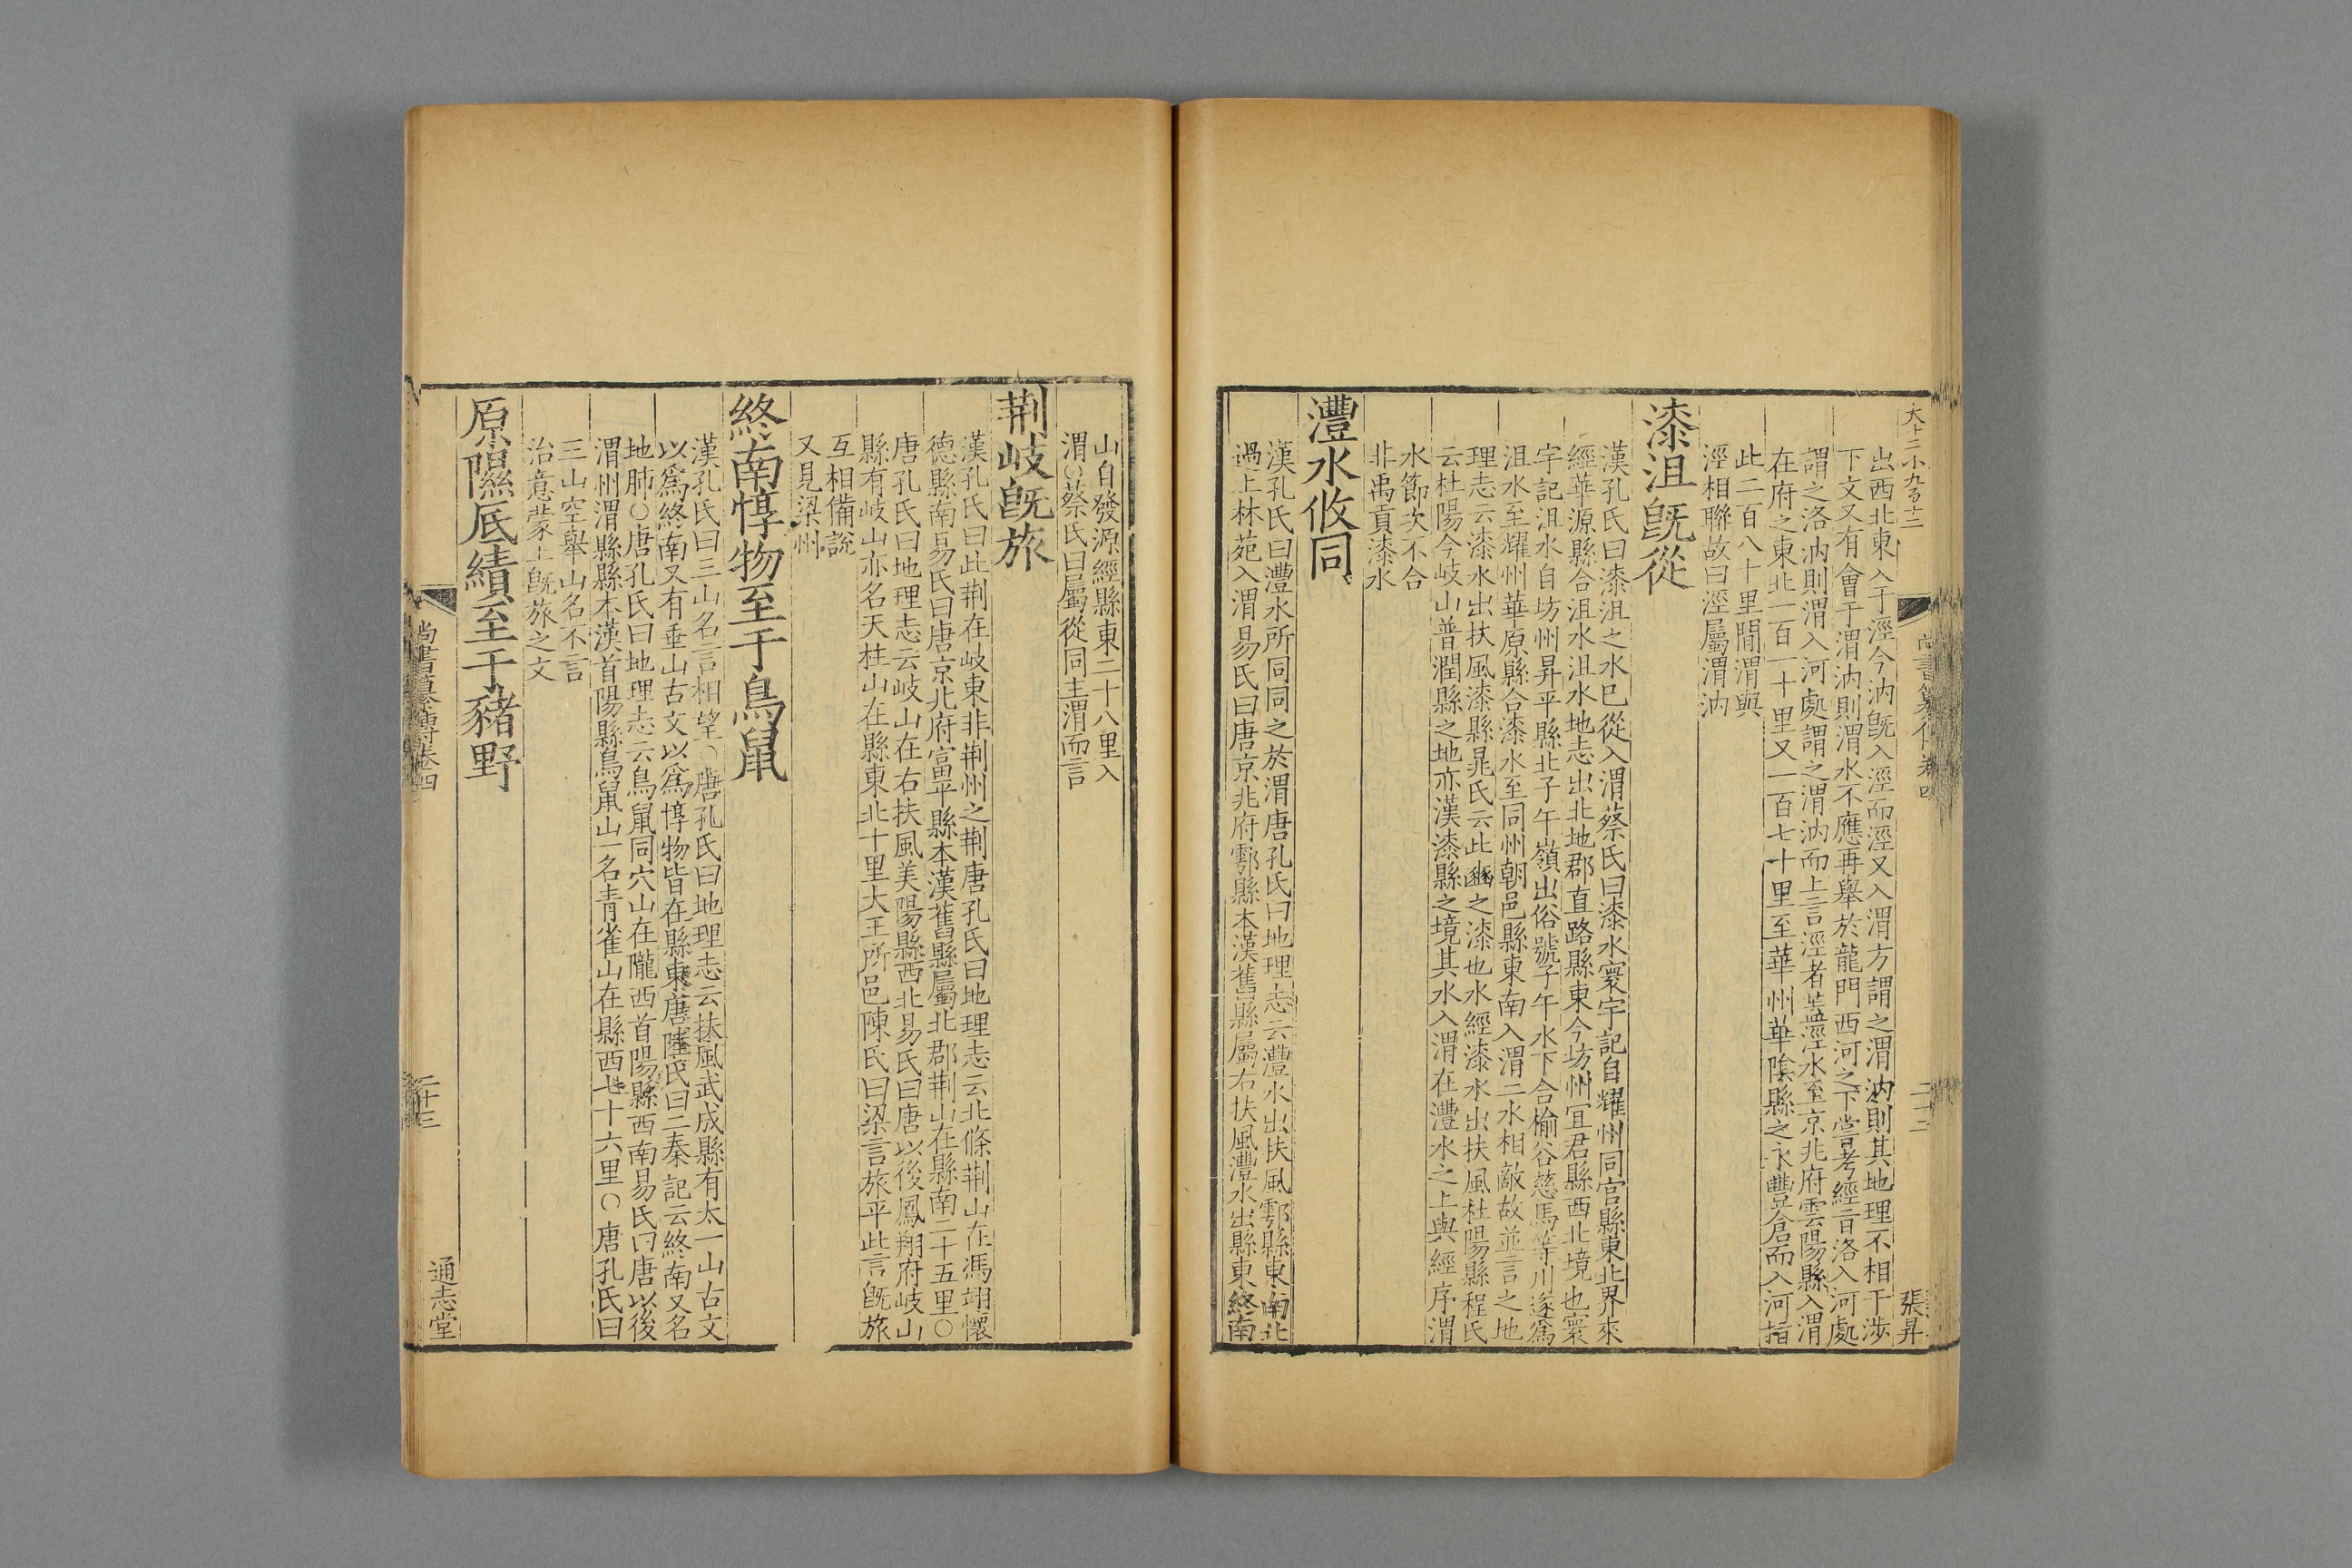 大十二小九百十三
出西北東入于涇今汭旣入涇而涇又入渭方謂之渭汭則其地理不相干涉
下文又有會于渭汭則渭水不應再舉於龍門西河之下嘗考經言洛入河處
謂之洛汭則渭入河處謂之渭汭而上言涇者蓋涇水至京兆府雲陽縣入渭
在府之東北一百一十里又一百七十里至華州華陰縣之永豐倉而入河指
此二百八十里閒渭與
涇相聯故曰涇屬渭汭
漆沮旣從
漢孔氏曰漆沮之水已從入渭蔡氏曰漆水寰宇記自耀州同官縣東北界來
經華源縣合沮水沮水地志出北地郡直路縣東今坊州宜君縣西北境也寰
宇記沮水自坊州昇平縣北子午嶺出俗號子午水下合榆谷慈馬等川遂爲
沮水至耀州華原縣合漆水至同州朝邑縣東南入渭二水相敵故並言之地
理志云漆水出扶風漆縣晁氏云此豳之漆也水經漆水出扶風杜陽縣程氏
云杜陽今岐山普潤縣之地亦漢漆縣之境其水入渭在灃水之上與經序渭
水節次不合
非禹貢漆水
灃水攸同
漢孔氏曰灃水所同同之於渭唐孔氏曰地理志云灃水出扶風鄠縣東南北
過上林苑入渭易氏曰唐京兆府鄠縣本漢舊縣屬右扶風灃水出縣東終南
尚書纂傳卷四
二十二
張昇
山自發源經縣東二十八里入
渭○蔡氏曰屬從同主渭而言
荆岐旣旅
漢孔氏曰此荆在岐東非荆州之荆唐孔氏曰地理志云北條荆山在馮翊懷
德縣南易氏曰唐京兆府富平縣本漢舊縣屬北郡荆山在縣南二十五里○
唐孔氏曰地理志云岐山在右扶風美陽縣西北易氏曰唐以後鳳翔府岐山
縣有岐山亦名天柱山在縣東北十里大王所邑陳氏曰梁言旅平此言旣旅
互相備說
又見梁州
終南惇物至于鳥鼠
漢孔氏曰三山名言相望○唐孔氏曰地理志云扶風武成縣有太一山古文
以爲終南又有垂山古文以爲惇物皆在縣東唐陸氏曰三秦記云終南又名
地肺○唐孔氏曰地理志云鳥鼠同穴山在隴西首陽縣西南易氏曰唐以後
渭州渭縣縣本漢首陽縣鳥鼠山一名青雀山在縣西七十六里○唐孔氏曰
三山空舉山名不言
治意蒙上旣旅之文
原隰厎績至于豬野
尚書纂傳卷四
二十三
通志堂